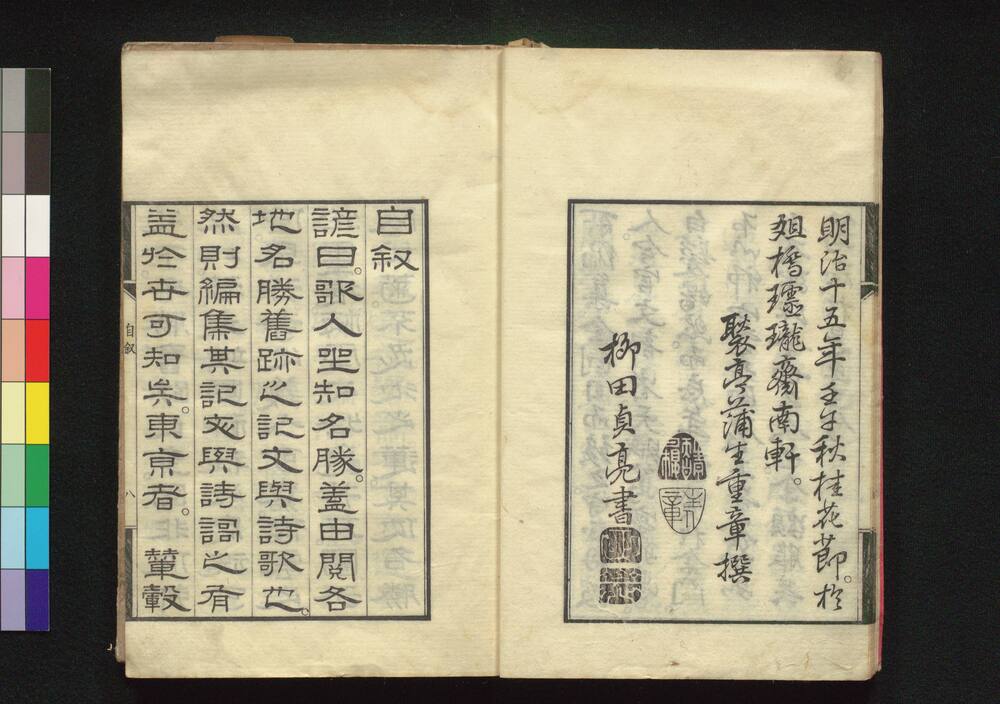 明治十五年壬午秋桂花節。於
爼橋瓏齋南軒。
褧亭蒲生重章撰
柳田貞亮書
自叙
諺曰。歌人坐知名勝。蓋由閲各
地名勝舊跡之記文與詩歌也。
然則編集其記文與詩謌之有
益於世可知矣。東京者。輦轂
自叙
八